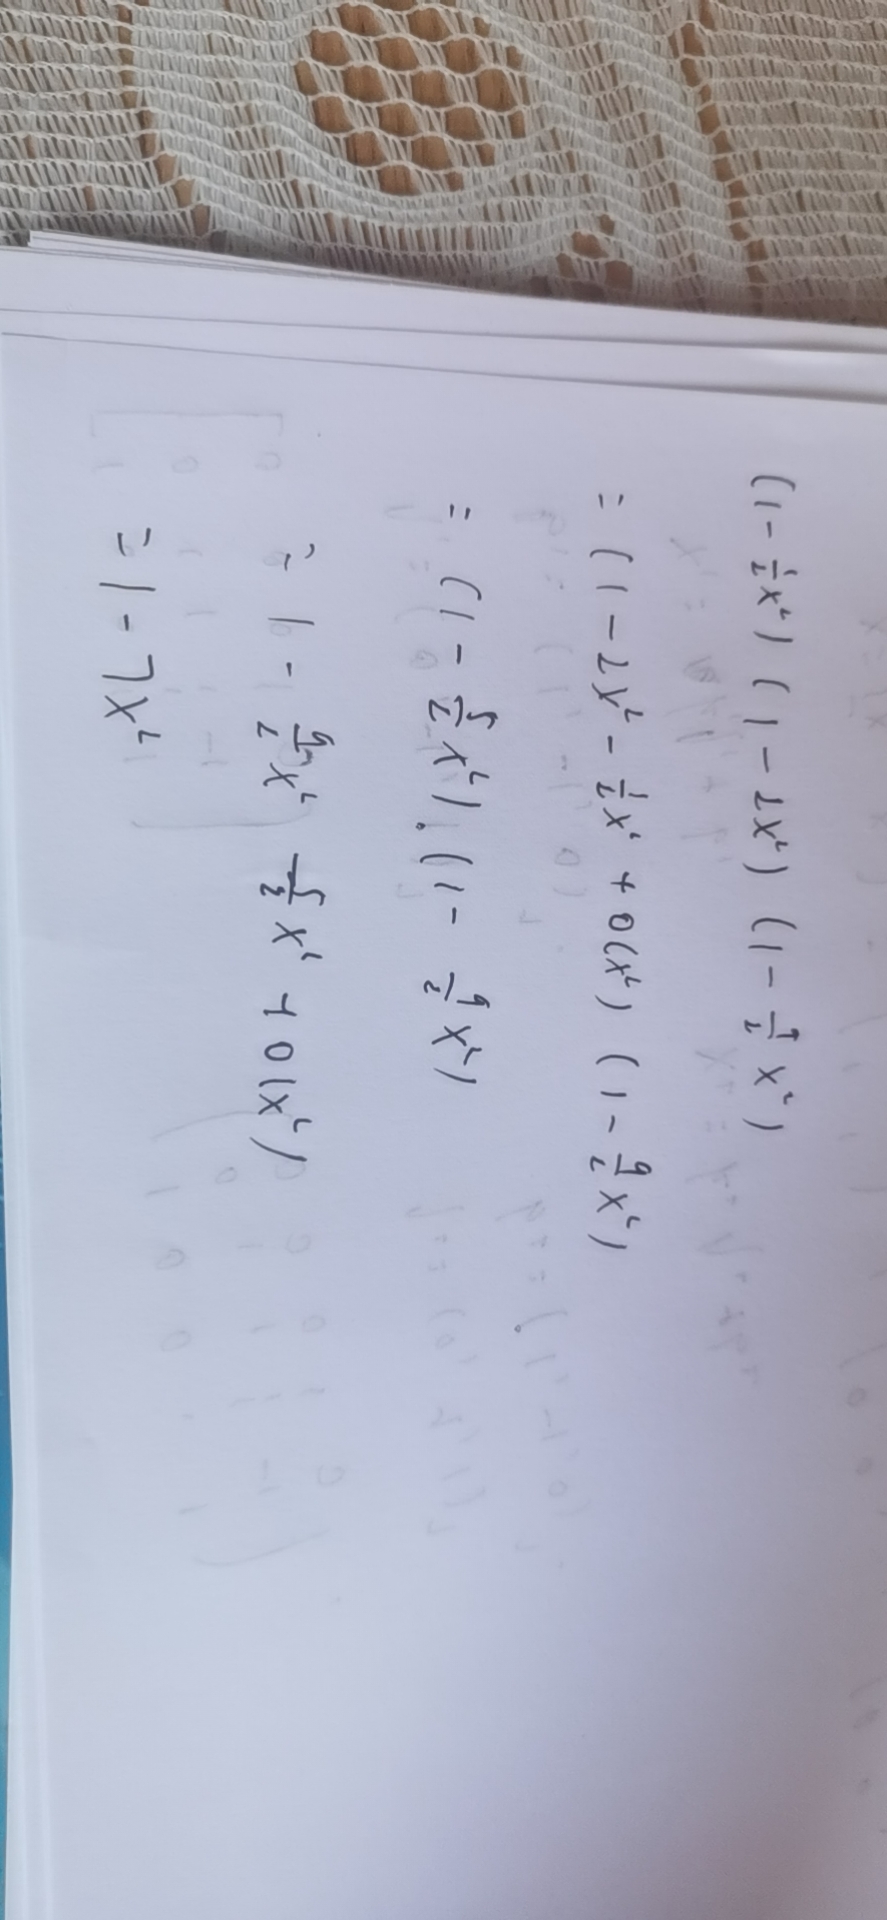 (1 - 1/2 x²) (1 - 2x²) (1 - 9/2 x²)
= (1 - 2x² - 1/2 x² + o(x²) (1 - 9/2 x²)
= (1 - 5/2 x²) . (1 - 9/2 x²)
= 1 - 9/2 x² - 5/2 x² + o(x²)
= 1 - 7x²